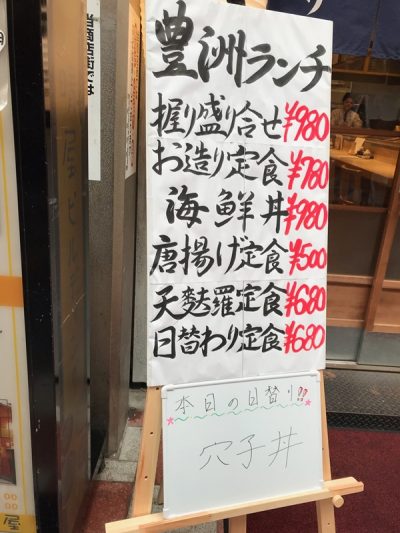 豊洲ランチ
握り盛り合せ ¥980
お造り定食 ¥780
海鮮丼 ¥980
唐揚げ定食 ¥500
天麩羅定食 ¥680
日替わり定食 ¥680
本日の日替り!!
穴子丼
当商店街では
屋